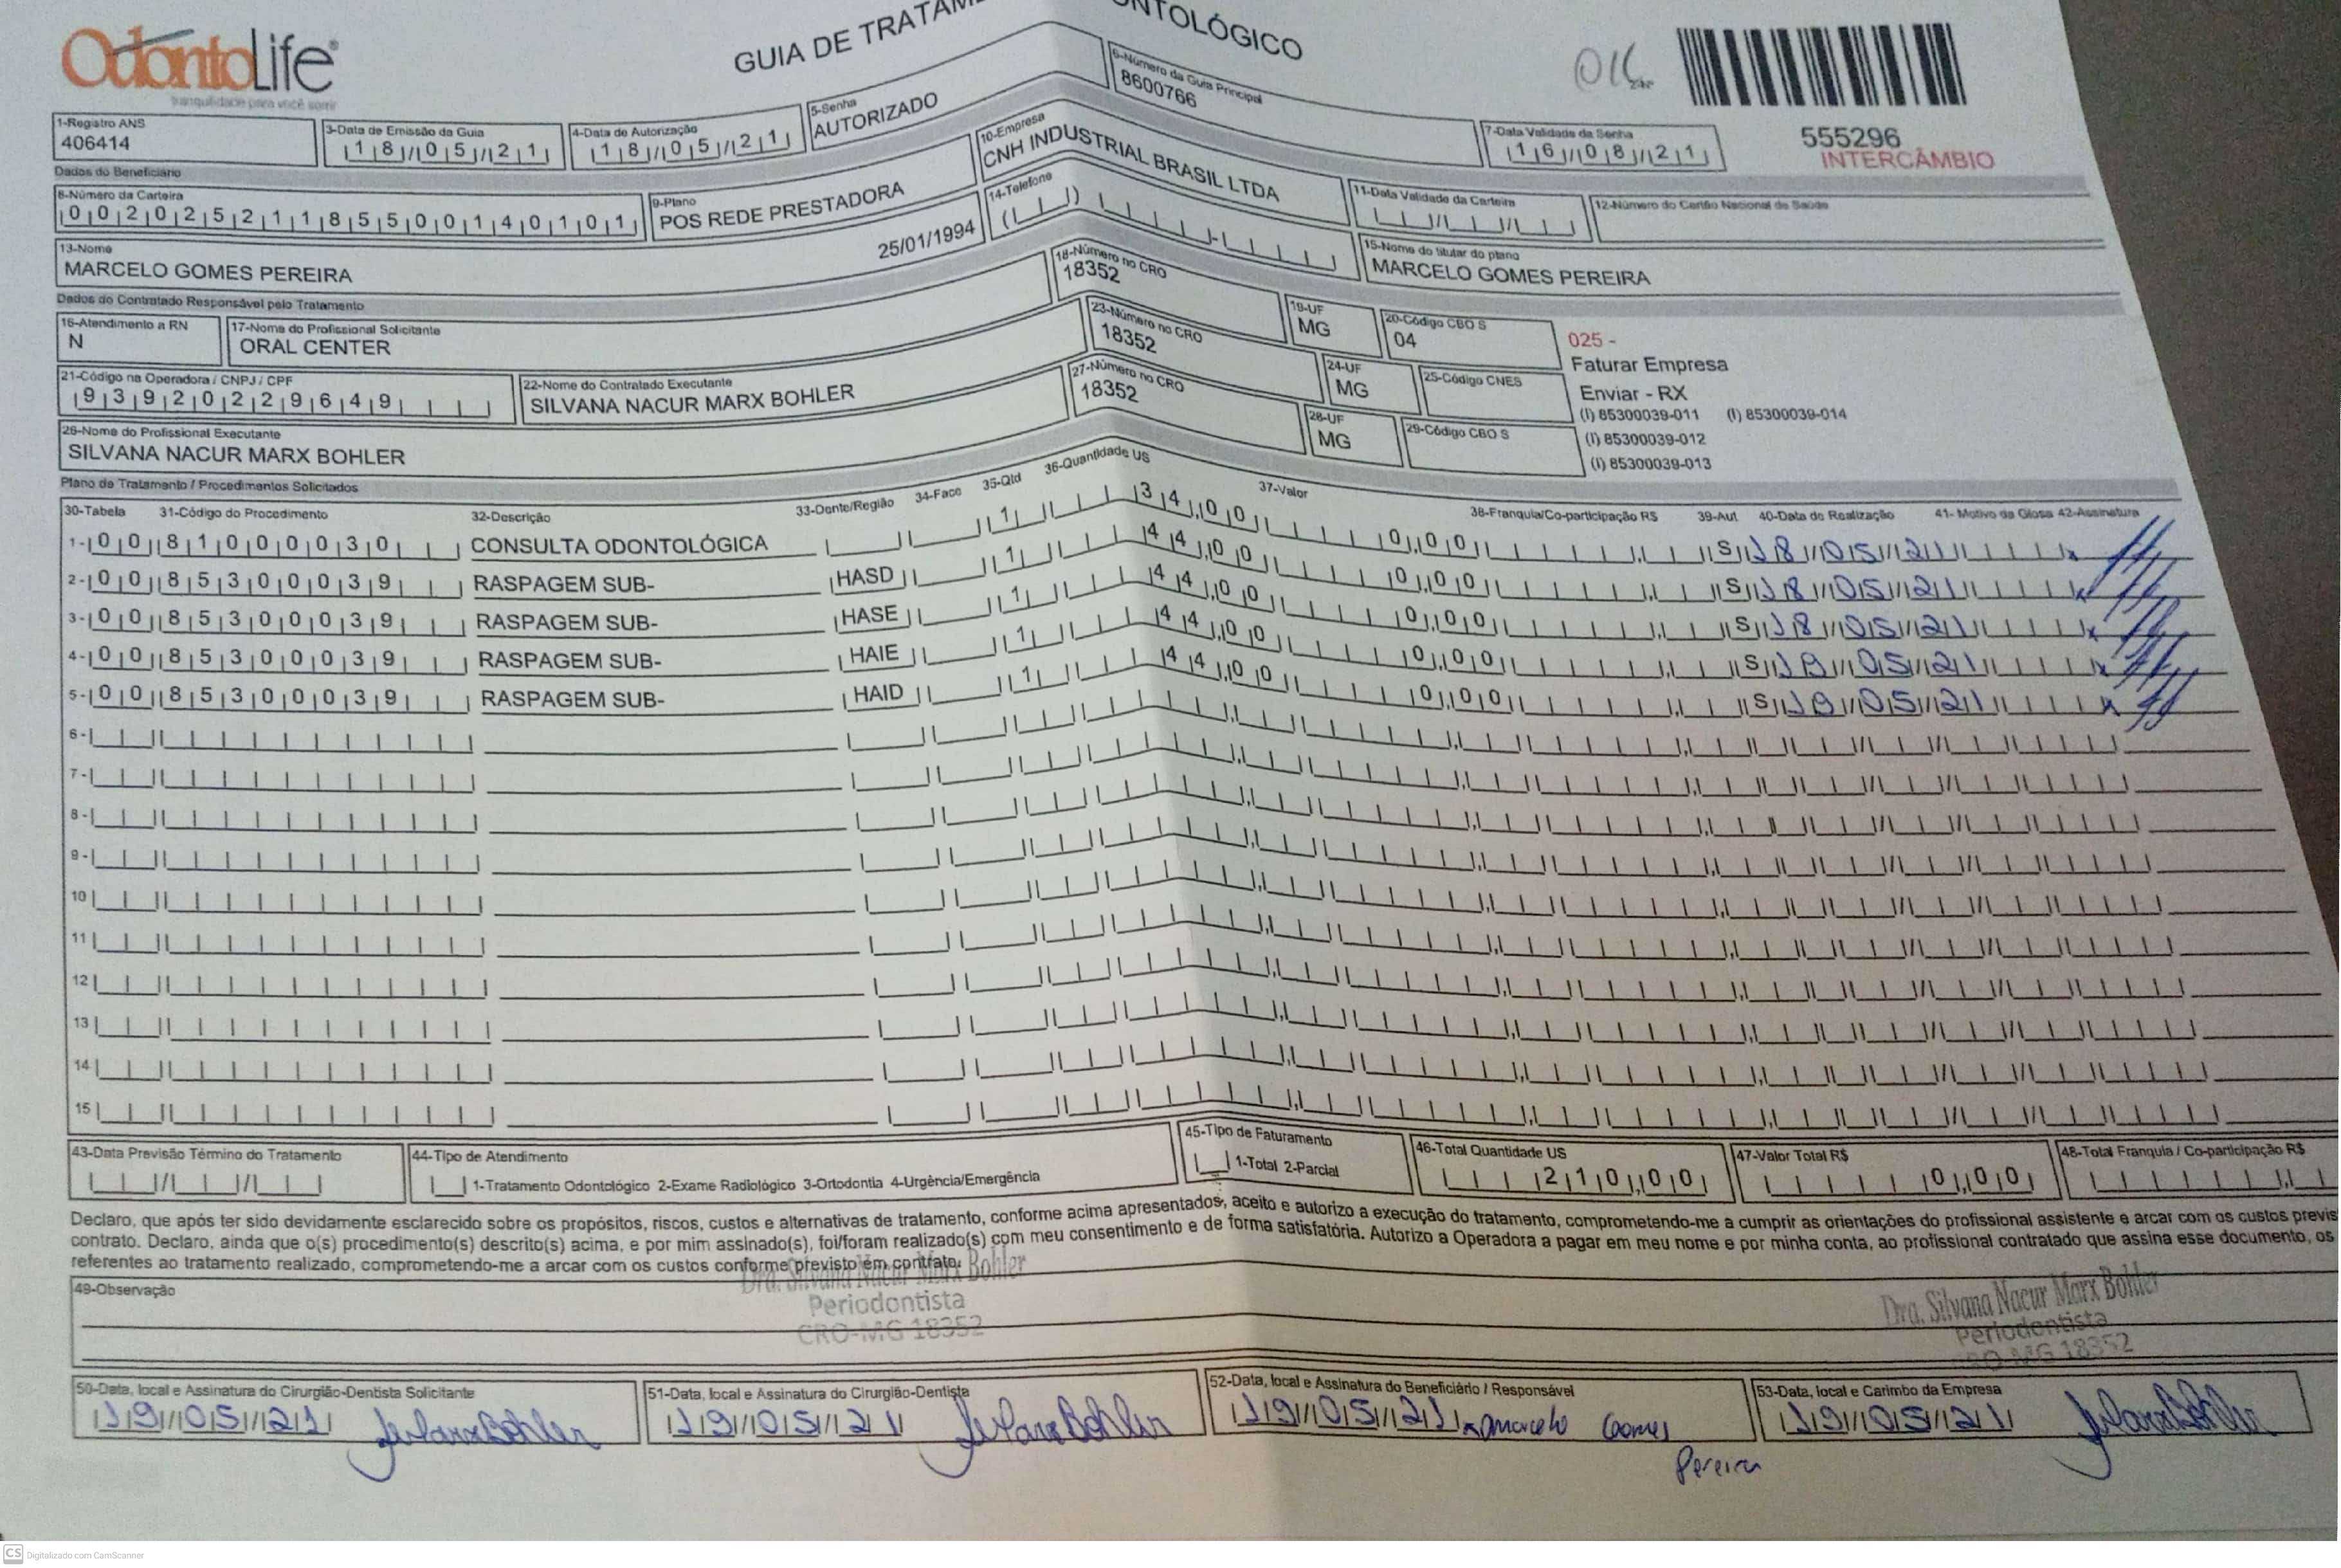 OdontoLife
tranquilidade para você sorrir
GUIA DE TRATAM ONTOLÓGICO
555296
INTERCÂMBIO
1-Registro ANS
406414
3-Data de Emissão da Guia
18/05/21
4-Data de Autorização
18/05/21
5-Senha
AUTORIZADO
6-Número da Guia Principal
8600766
7-Data Validade da Senha
16/08/21
Dados do Beneficiário
8-Número da Carteira
00202521185500140101
9-Plano
POS REDE PRESTADORA
10-Empresa
CNH INDUSTRIAL BRASIL LTDA
11-Data Validade da Carteira
12-Número do Cartão Nacional de Saúde
13-Nome
MARCELO GOMES PEREIRA
25/01/1994
14-Telefone
15-Nome do titular do plano
MARCELO GOMES PEREIRA
Dados do Contratado Responsável pelo Tratamento
16-Atendimento a RN
N
17-Nome do Profissional Solicitante
ORAL CENTER
18-Número no CRO
18352
19-UF
MG
20-Código CBO S
04
21-Código na Operadora / CNPJ / CPF
93920229649
22-Nome do Contratado Executante
SILVANA NACUR MARX BOHLER
23-Número no CRO
18352
24-UF
MG
25-Código CNES
26-Nome do Profissional Executante
SILVANA NACUR MARX BOHLER
27-Número no CRO
18352
28-UF
MG
29-Código CBO S
025 -
Faturar Empresa
Enviar - RX
(I) 85300039-011 (I) 85300039-014
(I) 85300039-012
(I) 85300039-013
Plano de Tratamento / Procedimentos Solicitados
30-Tabela 31-Código do Procedimento 32-Descrição 33-Dente/Região 34-Face 35-Qtd 36-Quantidade US 37-Valor 38-Franquia/Co-participação R$ 39-Aut 40-Data de Realização 41- Motivo da Glosa 42-Assinatura
1- 00 81000030 CONSULTA ODONTOLÓGICA 1 34,00 0,00 S 18/05/21
2- 00 85300039 RASPAGEM SUB- HASD 1 44,00 0,00 S 18/05/21
3- 00 85300039 RASPAGEM SUB- HASE 1 44,00 0,00 S 18/05/21
4- 00 85300039 RASPAGEM SUB- HAIE 1 44,00 0,00 S 18/05/21
5- 00 85300039 RASPAGEM SUB- HAID 1 44,00 0,00 S 18/05/21
6-
7-
8-
9-
10
11
12
13
14
15
43-Data Previsão Término do Tratamento
44-Tipo de Atendimento
1-Tratamento Odontológico 2-Exame Radiológico 3-Ortodontia 4-Urgência/Emergência
45-Tipo de Faturamento
1-Total 2-Parcial
46-Total Quantidade US
210,00
47-Valor Total R$
0,00
48-Total Franquia / Co-participação R$
Declaro, que após ter sido devidamente esclarecido sobre os propósitos, riscos, custos e alternativas de tratamento, conforme acima apresentados, aceito e autorizo a execução do tratamento, comprometendo-me a cumprir as orientações do profissional assistente e arcar com os custos previs
contrato. Declaro, ainda que o(s) procedimento(s) descrito(s) acima, e por mim assinado(s), foi/foram realizado(s) com meu consentimento e de forma satisfatória. Autorizo a Operadora a pagar em meu nome e por minha conta, ao profissional contratado que assina esse documento, os
referentes ao tratamento realizado, comprometendo-me a arcar com os custos conforme previsto em contrato.
49-Observação
Dra. Silvana Nacur Marx Bohler
Periodontista
CRO-MG 18352
Dra. Silvana Nacur Marx Bohler
Periodontista
CRO-MG 18352
50-Data, local e Assinatura do Cirurgião-Dentista Solicitante
19/05/21
51-Data, local e Assinatura do Cirurgião-Dentista
19/05/21
52-Data, local e Assinatura do Beneficiário / Responsável
19/05/21 x Marcelo Gomes
Pereira
53-Data, local e Carimbo da Empresa
19/05/21
CS Digitalizado com CamScanner